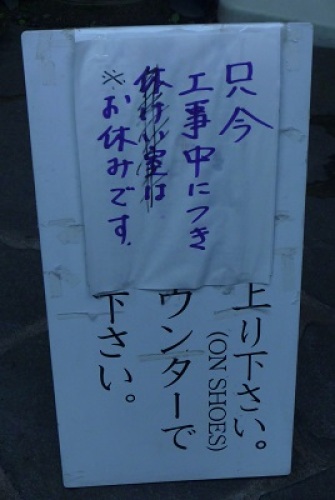 只今
工事中につき
休けい室は
※お休みです。
上り下さい。
(ON SHOES)
ウンターで
下さい。